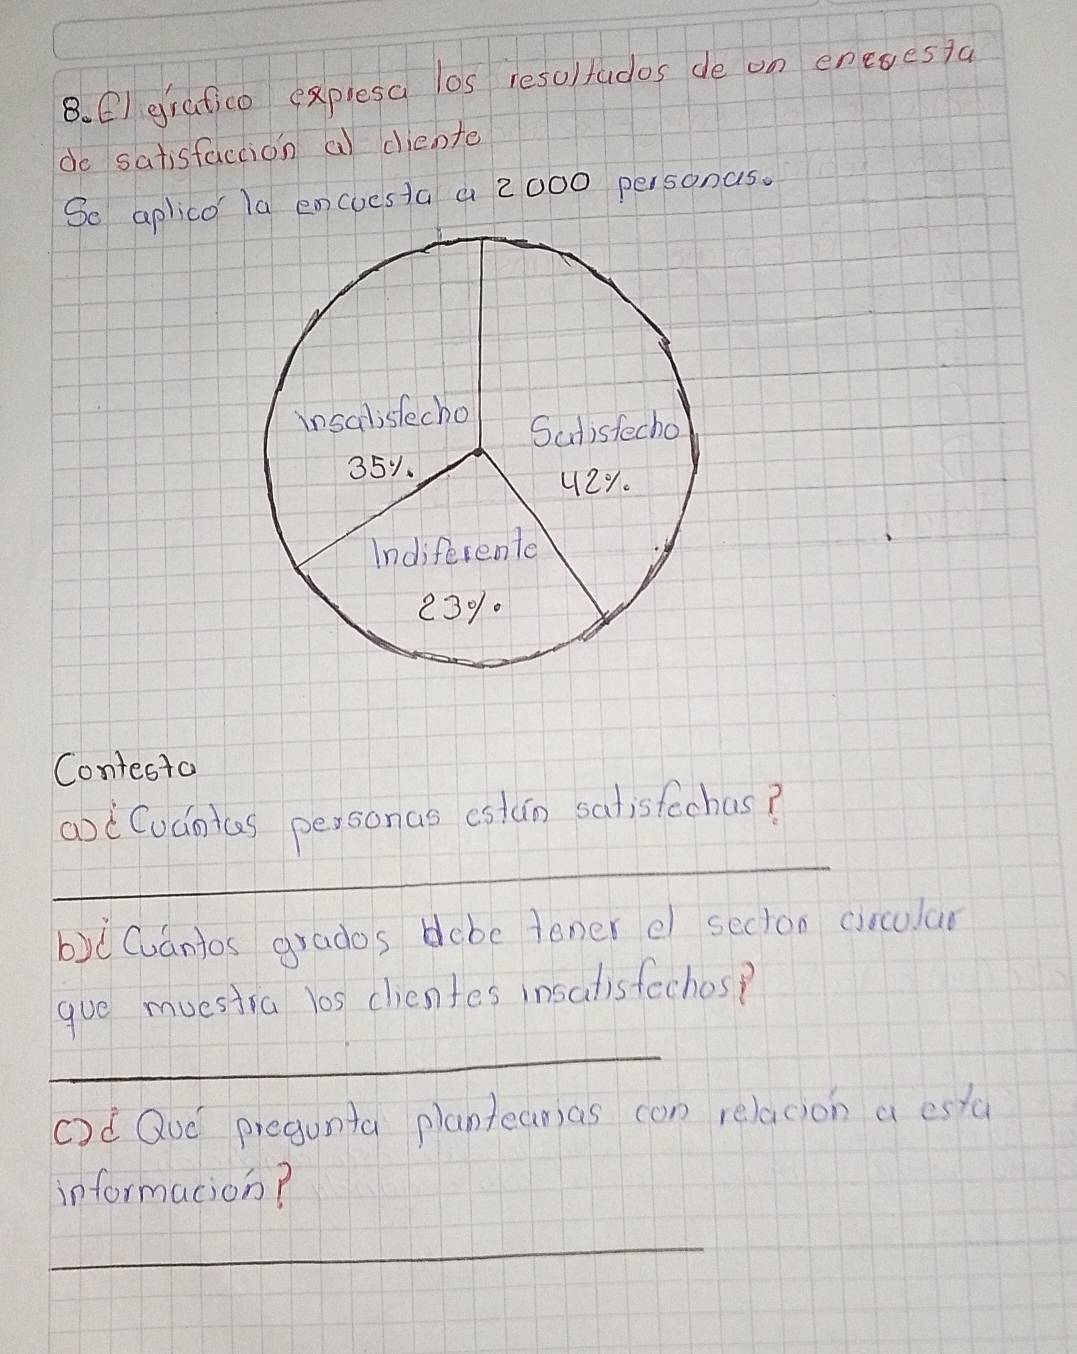 8. El gráfico expresa los resultados de un encuesta
de satisfacción al cliente
Se aplicó la encuesta a 2000 personas.
insatisfecho
Satisfecho
35%.
42%.
Indiferente
23%.
Contesta
a) ¿Cuántas personas están satisfechas?
b) ¿Cuántos grados debe tener el sector circular
que muestra los clientes insatisfechos?
c) ¿Qué pregunta plantearias con relación a esta
información?